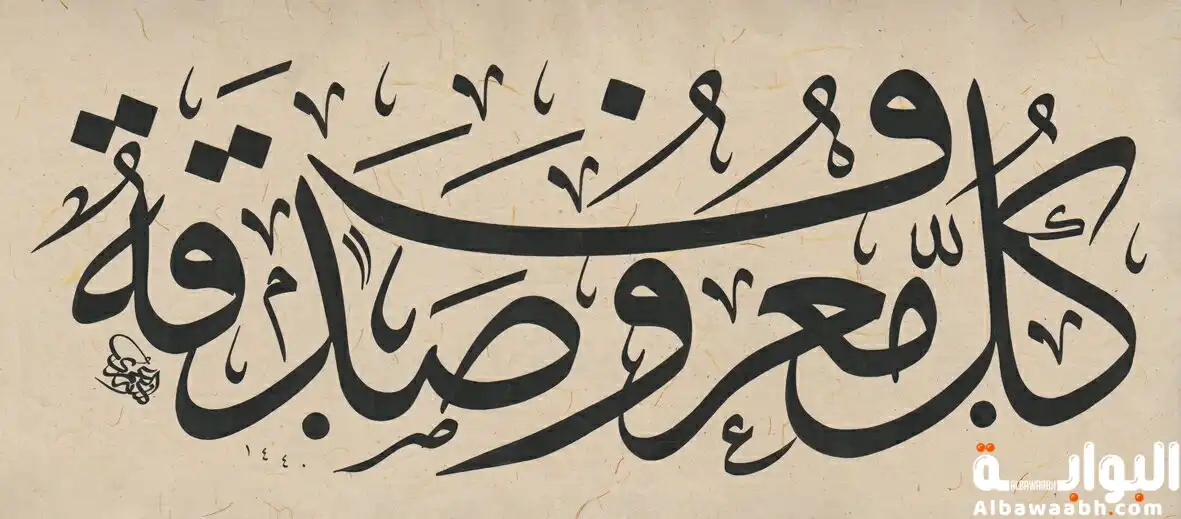 كُلُّ مَّعْرُوفٍ صَدَقَةٌ
١٤٤٠
البوابة
ALBAWAABH
Albawaabh.com